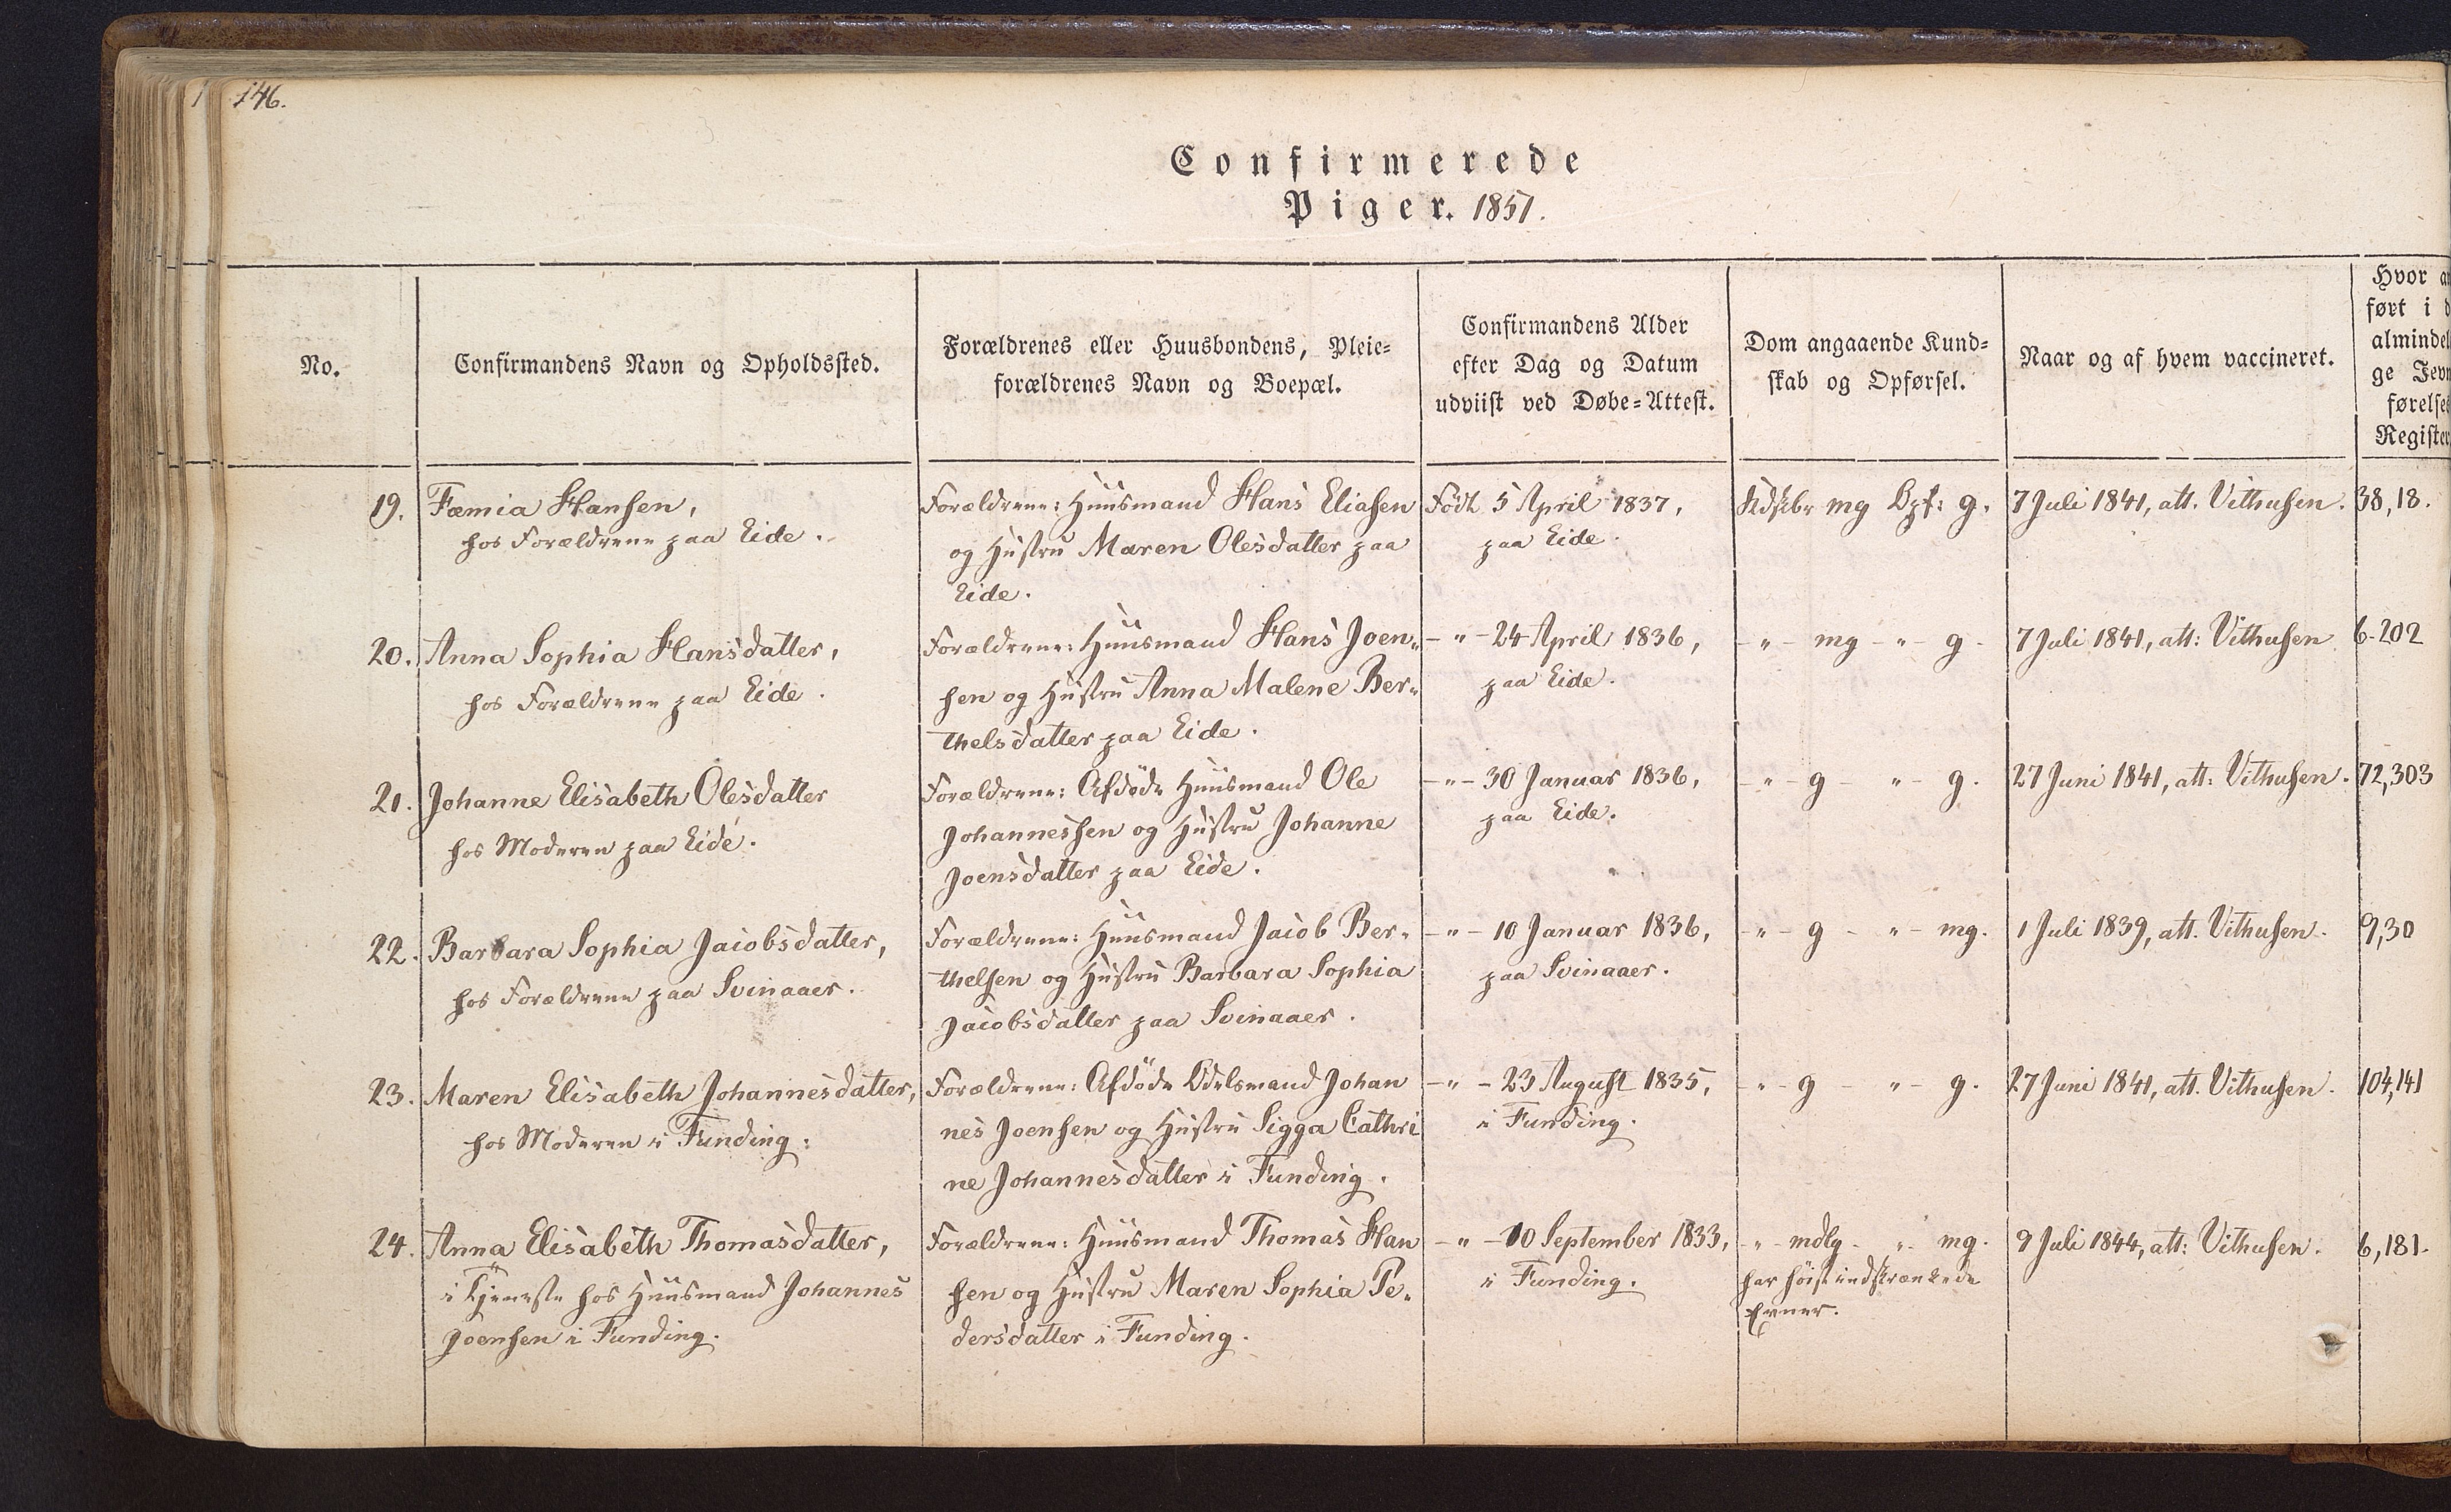 146.
Confirmerede
Piger. 1851.
No.
Confirmandens Navn og Opholdssted.
Forældrenes eller Huusbondens, Pleie-
forældrenes Navn og Boepæl.
Confirmandens Alder
efter Dag og Datum
udviist ved Døbe-Attest.
Dom angaaende Kund-
skab og Opførsel.
Naar og af hvem vaccineret.
Hvor an
ført i d
almindel
ge Jevn
førelses
Register
19.
Fæmia Hansen,
hos Forældrene paa Eide.
Forældrene: Huusmand Hans Eliasen
og Hustru Maren Olesdatter paa
Eide.
Født 5 April 1837,
paa Eide.
Kdskbr mg Opf: g.
7 Juli 1841, att. Vithusen.
38,18.
20.
Anna Sophia Hansdatter,
hos Forældrene paa Eide.
Forældrene: Huusmand Hans Joen„
sen og Hustru Anna Malene Ber„
thelsdatter paa Eide.
-„- 24 April 1836,
paa Eide.
-„- mg -„- g.
7 Juli 1841, att: Vithusen
6-202
21.
Johanne Elisabeth Olesdatter
hos Moderen paa Eide.
Forældrene: Afdøde Huusmand Ole
Johannessen og Hustru Johanne
Joensdatter paa Eide.
-„- 30 Januar 1836,
paa Eide.
-„- g -„- g.
27 Juni 1841, att: Vithusen.
72,303
22.
Barbara Sophia Jacobsdatter,
hos Forældrene paa Svinaaer.
Forældrene: Huusmand Jacob Ber-
thelsen og Hustru Barbara Sophia
Jacobsdatter paa Svinaaer.
-„- 10 Januar 1836,
paa Svinaaer.
-„- g -„- mg.
1 Juli 1839, att. Vithusen.
9,30
23.
Maren Elisabeth Johannesdatter,
hos Moderen i Funding.
Forældrene: Afdøde Odelsmand Johan
nes Joensen og Hustru Sigga Cathri
ne Johannesdatter i Funding.
-„- 23 August 1835,
i Funding.
-„- g -„- g.
27 Juni 1841, att. Vithusen.
104,141
24.
Anna Elisabeth Thomasdatter,
i Tjeneste hos Huusmand Johannes
Joensen i Funding.
Forældrene: Huusmand Thomas Han
sen og Hustru Maren Sophia Pe-
dersdatter i Funding.
-„- 10 September 1833,
i Funding.
-„- mdlg -„- mg.
har høist indskrænkede
Evner.
9 Juli 1844, att: Vithusen.
6,181.